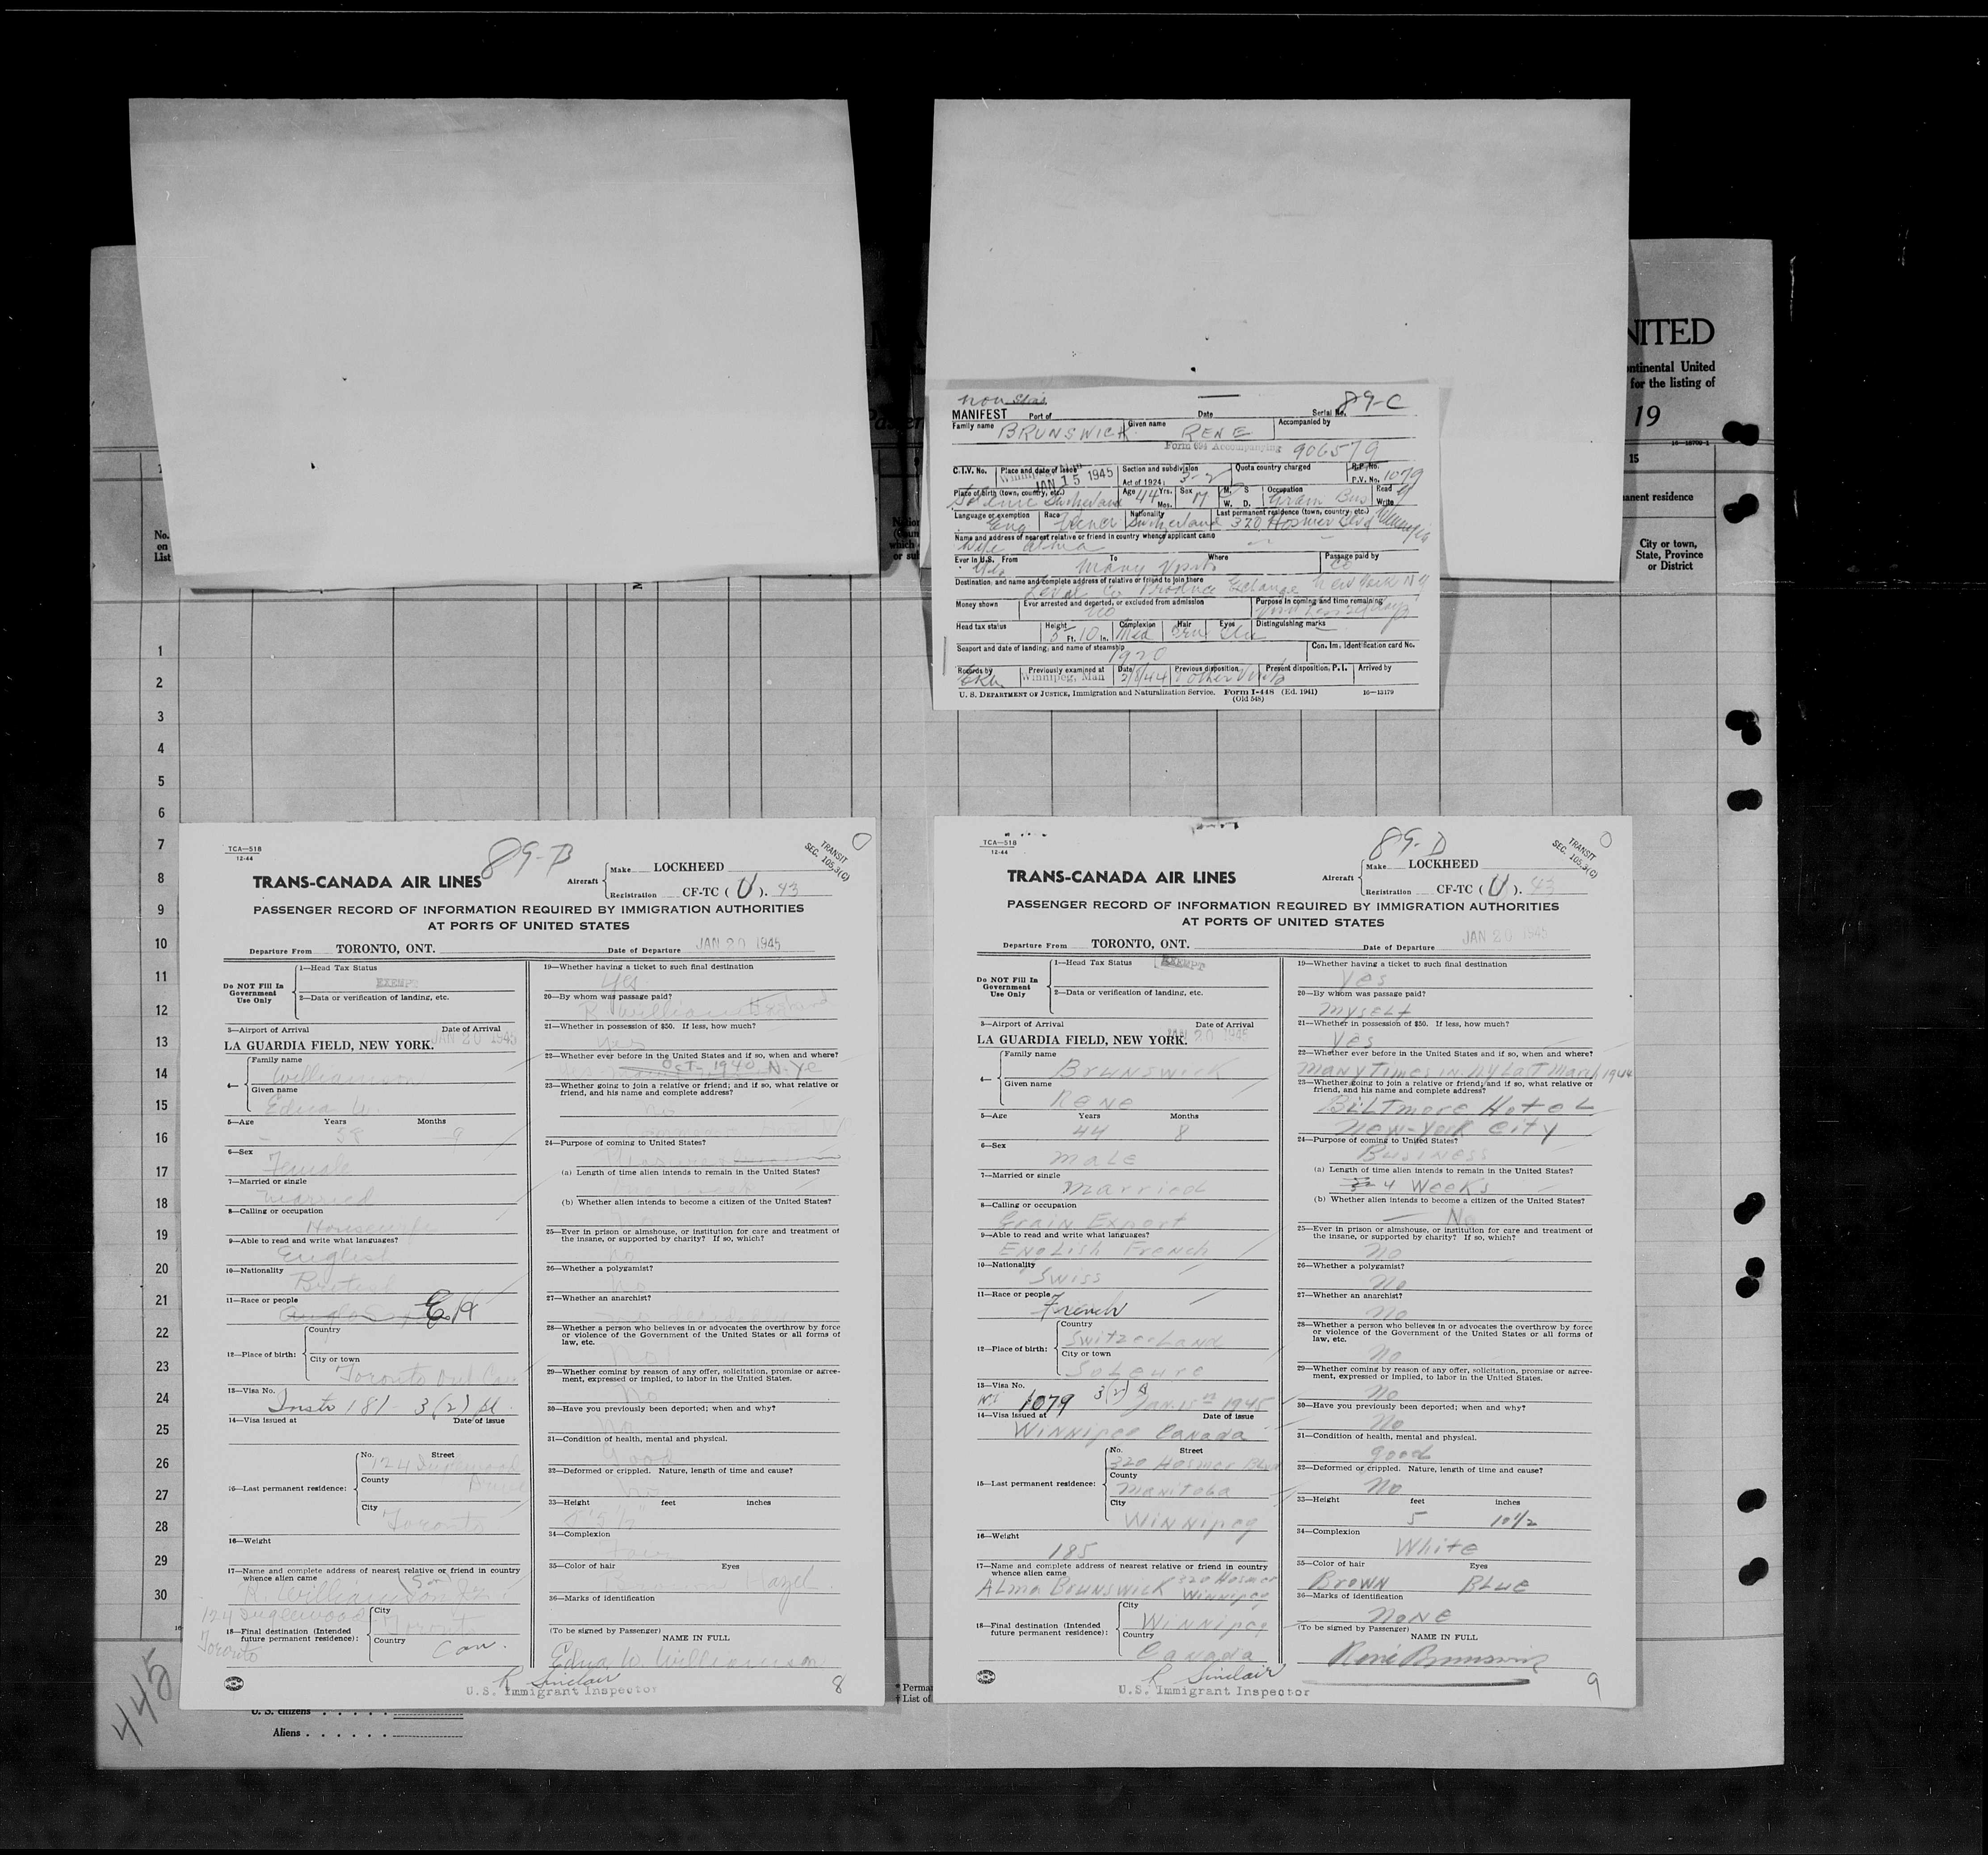 NITED
ontinental United
for the listing of
19
16-18709-1
15
anent residence
City or town,
State, Province
or District
No.
on
List
1
2
3
4
5
6
7
8
9
10
11
12
13
14
15
16
17
18
19
20
21
22
23
24
25
26
27
28
29
30
445
U. S. citizens
Aliens
* Perma
† List of
non Stat.
89-C
MANIFEST Port of Date Serial No.
Family name BRUNSWICK Given name RENE Accompanied by
Form 694 Accompanying 906579
C.I.V. No. Place and date of issue JAN 15 1945 Section and subdivision Act of 1924: 3-2 Quota country charged R.P. No. P.V. No. 1079
Place of birth (town, country, etc.) Switzerland Age 44 Yrs. Mos. Sex M M. S W. D. Occupation Grain Bus Read Write
Language or exemption Eng Race French Nationality Switzerland Last permanent residence (town, country, etc.) 320 Hosmer Blvd Winnipeg
Name and address of nearest relative or friend in country whence applicant came
Wife Alma
Ever in U.S. Yes From To Many Visits Where Passage paid by Co
Destination, and name and complete address of relative or friend to join there
Co Produce Exchange New York NY
Money shown Ever arrested and deported, or excluded from admission No Purpose in coming and time remaining
Head tax status Height 5 Ft. 10 In. Complexion Med Hair Brn Eyes Blu Distinguishing marks
Seaport and date of landing, and name of steamship 1920 Con. Im. Identification card No.
Records by Previously examined at Winnipeg, Man Date 2/8/44 Previous disposition Other Visits Present disposition, P. I. Arrived by
U. S. DEPARTMENT OF JUSTICE, Immigration and Naturalization Service. Form I-448 (Ed. 1941) 16—13179
(Old 548)
TCA—518
12-44
89-B
TRANSIT
SEC. 105.3(C)
TRANS-CANADA AIR LINES
Aircraft Make LOCKHEED
Registration CF-TC ( U ). 43
PASSENGER RECORD OF INFORMATION REQUIRED BY IMMIGRATION AUTHORITIES
AT PORTS OF UNITED STATES
Departure From TORONTO, ONT. Date of Departure JAN 20 1945
Do NOT Fill In Government Use Only
1—Head Tax Status
EXEMPT
2—Data or verification of landing, etc.
3—Airport of Arrival Date of Arrival
LA GUARDIA FIELD, NEW YORK. JAN 20 1945
4— Family name
Williamson
Given name
Edna W.
5—Age Years Months
58 9
6—Sex
Female
7—Married or single
Married
8—Calling or occupation
Housewife
9—Able to read and write what languages?
English
10—Nationality
British
11—Race or people
12—Place of birth: Country
City or town
Toronto Ont Can
13—Visa No.
Instr 181 - 3(2)
14—Visa issued at Date of issue
15—Last permanent residence: No. Street
124 Inglewood
County
Drive
City
Toronto
16—Weight
17—Name and complete address of nearest relative or friend in country
whence alien came
R. Williamson Jr. (Son)
124 Inglewood
Toronto
18—Final destination (Intended
future permanent residence): City
Toronto
Country
Can.
19—Whether having a ticket to such final destination
Yes
20—By whom was passage paid?
R. Williamson Husband
21—Whether in possession of $50. If less, how much?
Yes
22—Whether ever before in the United States and if so, when and where?
Oct, 1940 N.Y.C
23—Whether going to join a relative or friend; and if so, what relative or
friend, and his name and complete address?
No
24—Purpose of coming to United States?
Pleasure
(a) Length of time alien intends to remain in the United States?
(b) Whether alien intends to become a citizen of the United States?
No
25—Ever in prison or almshouse, or institution for care and treatment of
the insane, or supported by charity? If so, which?
No
26—Whether a polygamist?
No
27—Whether an anarchist?
28—Whether a person who believes in or advocates the overthrow by force
or violence of the Government of the United States or all forms of
law, etc.
No
29—Whether coming by reason of any offer, solicitation, promise or agree-
ment, expressed or implied, to labor in the United States.
No
30—Have you previously been deported; when and why?
No
31—Condition of health, mental and physical.
Good
32—Deformed or crippled. Nature, length of time and cause?
No
33—Height feet inches
34—Complexion
Fair
35—Color of hair Eyes
Hazel
36—Marks of identification
(To be signed by Passenger) NAME IN FULL
Edna W. Williamson
R Sinclair
U.S. Immigrant Inspector
8
TCA—518
12-44
89-D
TRANSIT
SEC. 105.3(C)
TRANS-CANADA AIR LINES
Aircraft Make LOCKHEED
Registration CF-TC ( U ). 43
PASSENGER RECORD OF INFORMATION REQUIRED BY IMMIGRATION AUTHORITIES
AT PORTS OF UNITED STATES
Departure From TORONTO, ONT. Date of Departure JAN 20 1945
Do NOT Fill In Government Use Only
1—Head Tax Status EXEMPT
2—Data or verification of landing, etc.
3—Airport of Arrival Date of Arrival
LA GUARDIA FIELD, NEW YORK. JAN 20 1945
4— Family name
Brunswick
Given name
Rene
5—Age Years Months
44 8
6—Sex
Male
7—Married or single
Married
8—Calling or occupation
Grain Export
9—Able to read and write what languages?
English French
10—Nationality
Swiss
11—Race or people
French
12—Place of birth: Country
Switzerland
City or town
Soleure
13—Visa No.
1079 3(2) Jan. 15th 1945
14—Visa issued at Date of issue
Winnipeg Canada
15—Last permanent residence: No. Street
320 Hosmer Blvd
County
Manitoba
City
Winnipeg
16—Weight
185
17—Name and complete address of nearest relative or friend in country
whence alien came
Alma Brunswick 320 Hosmer
Winnipeg
18—Final destination (Intended
future permanent residence): City
Winnipeg
Country
Canada
19—Whether having a ticket to such final destination
Yes
20—By whom was passage paid?
Myself
21—Whether in possession of $50. If less, how much?
Yes
22—Whether ever before in the United States and if so, when and where?
Many Times in NY Last March 1944
23—Whether going to join a relative or friend; and if so, what relative or
friend, and his name and complete address?
Biltmore Hotel
New-York City
24—Purpose of coming to United States?
Business
(a) Length of time alien intends to remain in the United States?
4 Weeks
(b) Whether alien intends to become a citizen of the United States?
No
25—Ever in prison or almshouse, or institution for care and treatment of
the insane, or supported by charity? If so, which?
No
26—Whether a polygamist?
No
27—Whether an anarchist?
No
28—Whether a person who believes in or advocates the overthrow by force
or violence of the Government of the United States or all forms of
law, etc.
No
29—Whether coming by reason of any offer, solicitation, promise or agree-
ment, expressed or implied, to labor in the United States.
No
30—Have you previously been deported; when and why?
No
31—Condition of health, mental and physical.
good
32—Deformed or crippled. Nature, length of time and cause?
No
33—Height feet inches
5 10 1/2
34—Complexion
White
35—Color of hair Eyes
Brown Blue
36—Marks of identification
None
(To be signed by Passenger)
NAME IN FULL
René Brunswick
R Sinclair
U.S. Immigrant Inspector
9